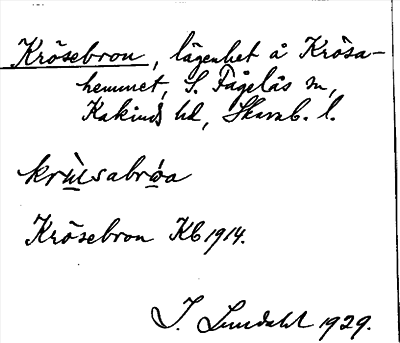 Krösebron, lägenhet å Krösa-
hemmet, S. Fågelås sn,
Kakinds hd, Skarab. l.
krùsabrøa
Krösebron Kb 1914.
I. Lundahl 1929.